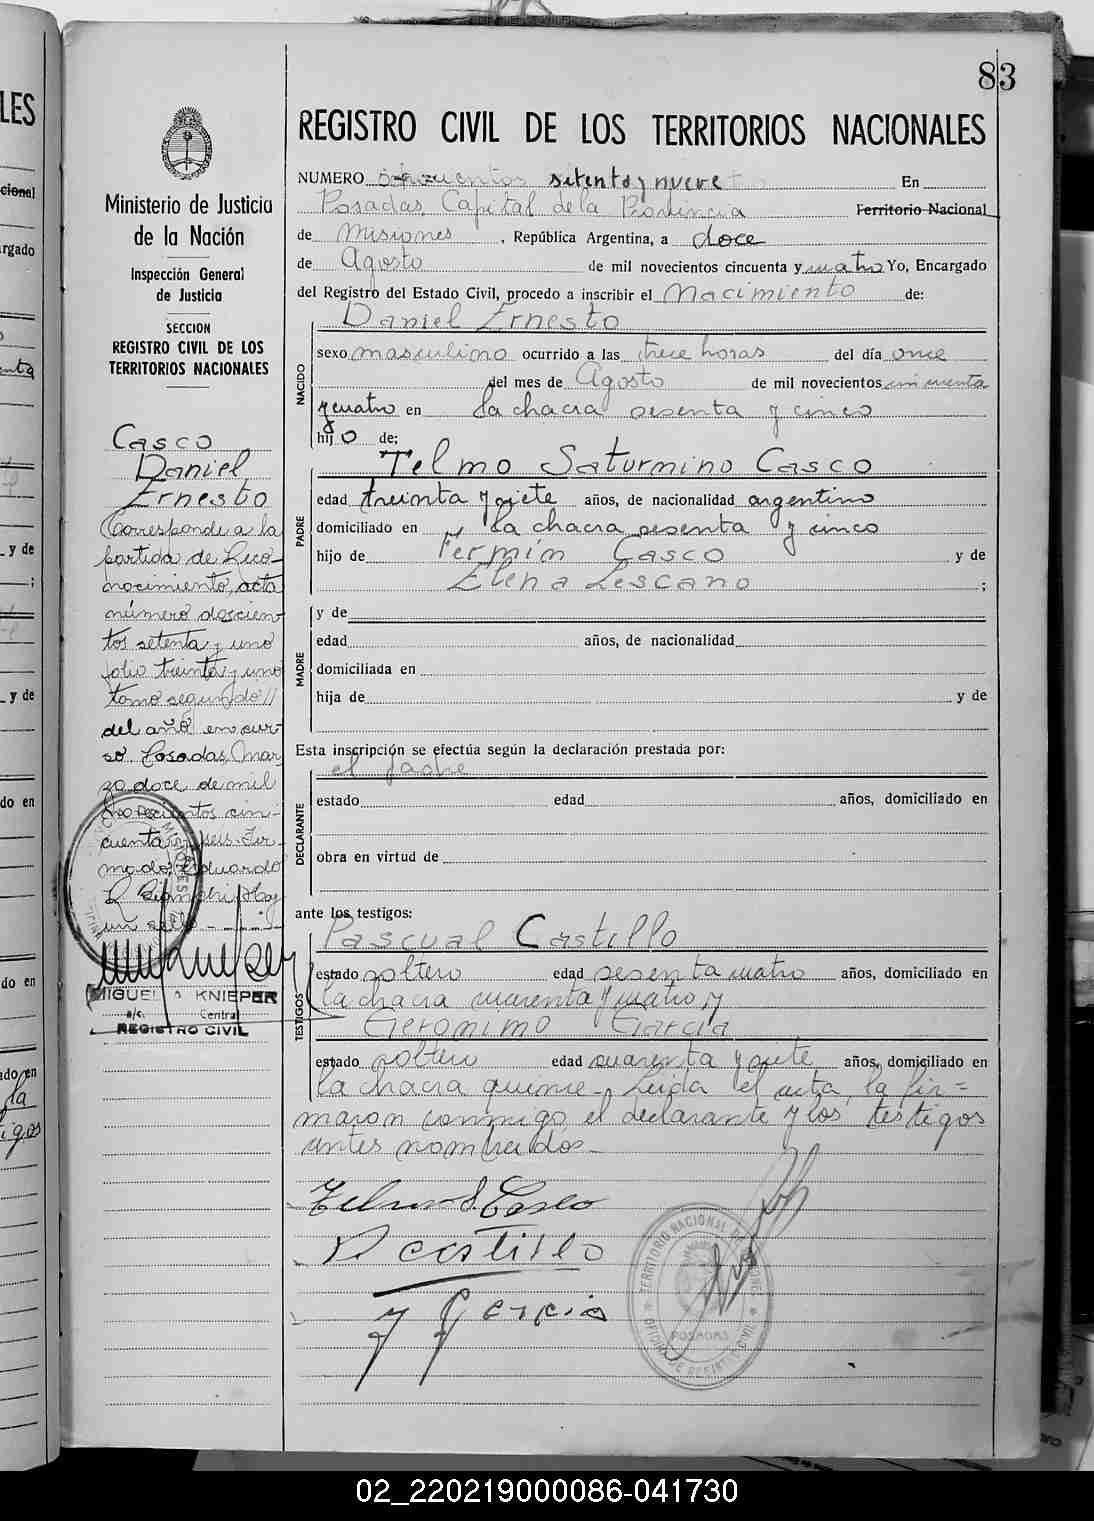 83
Ministerio de Justicia
de la Nación
Inspección General
de Justicia
SECCION
REGISTRO CIVIL DE LOS
TERRITORIOS NACIONALES
Casco
Daniel
Ernesto
Corresponde a la
partida de Reco-
nocimiento, acta
número doscien-
tos setenta y uno
folio treinta y uno
tomo segundo //
del año en cur-
so. Posadas, Mar-
zo doce de mil
novecientos cin-
cuenta y seis. Fir-
mado: Eduardo
R. Bianchi. Hay
un sello
MIGUEL A. KNIEPER
a/c. Central
REGISTRO CIVIL
REGISTRO CIVIL DE LOS TERRITORIOS NACIONALES
NUMERO setenta y nueve En
Posadas, Capital de la Provincia Territorio Nacional
de Misiones, República Argentina, a doce
de Agosto de mil novecientos cincuenta y cuatro Yo, Encargado
del Registro del Estado Civil, procedo a inscribir el Nacimiento de:
Daniel Ernesto
NACIDO
sexo masculino ocurrido a las trece horas del día once
del mes de Agosto de mil novecientos cincuenta
y cuatro en la chacra sesenta y cinco
hijo de;
Telmo Saturnino Casco
PADRE
edad treinta y siete años, de nacionalidad argentino
domiciliado en la chacra sesenta y cinco
hijo de Fermín Casco y de
Elena Lescano ;
MADRE
y de
edad años, de nacionalidad
domiciliada en
hija de y de
Esta inscripción se efectúa según la declaración prestada por:
el padre
DECLARANTE
estado edad años, domiciliado en
obra en virtud de
ante los testigos:
Pascual Castillo
TESTIGOS
estado soltero edad sesenta cuatro años, domiciliado en
la chacra cuarenta y cuatro y
Gerónimo García
estado soltero edad cuarenta y siete años, domiciliado en
la chacra quince - Leida el acta, la fir=
maron conmigo, el declarante y los testigos
antes nombrados-
Telmo S. Casco
P castillo
y Garcia
TERRITORIO NACIONAL DE MISIONES
POSADAS
OFICINA DE REGISTRO CIVIL
02_220219000086-041730